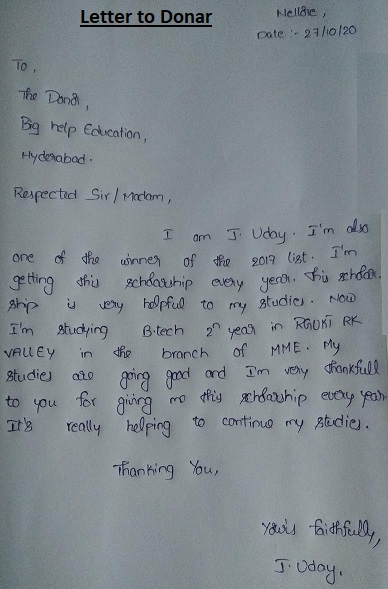 Letter to Donar
Nellore,
Date :- 27/10/20
To,
The Donar,
Big help Education,
Hyderabad.
Respected Sir/Madam,
I am J. Uday. I'm also
one of the winner of the 2017 list. I'm
getting this scholarship every year. This scholar-
ship is very helpful to my studies. Now
I'm studying B.tech 2nd year in RGUKT RK
VALLEY in the branch of MME. My
studies are going good and I'm very thankfull
to you for giving me this scholarship every year
It's really helping to continue my studies.
Thanking You,
Your's faithfully,
J. Uday.